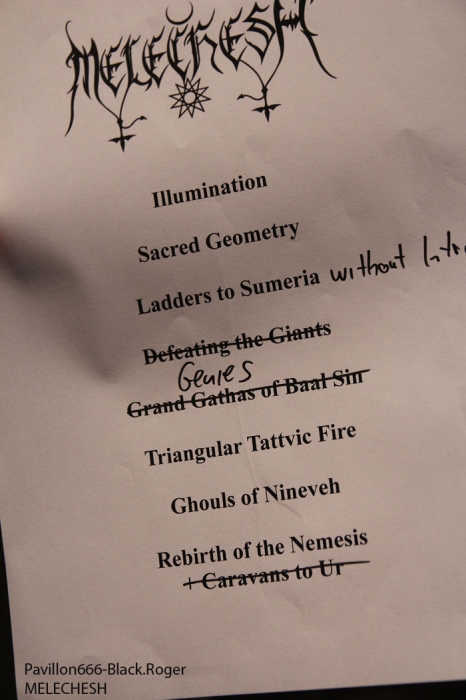 MELECHESH
Illumination
Sacred Geometry
Ladders to Sumeria without
Defeating the Giants
Genies
Grand Gathas of Baal Sin
Triangular Tattvic Fire
Ghouls of Nineveh
Rebirth of the Nemesis
+ Caravans to Ur
Pavillon666-Black.Roger
MELECHESH